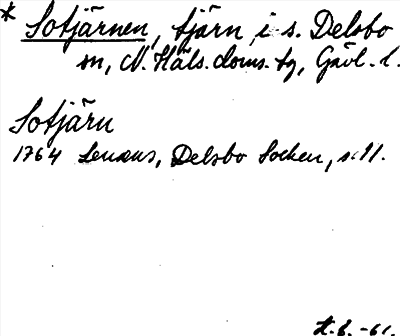 * Sotjärnen, tjärn i s. Delsbo
sn, N. Häls. doms. tg, Gävl. l.
Sotjärn
1764 Lenæus, Delsbo Socken, s. 11.